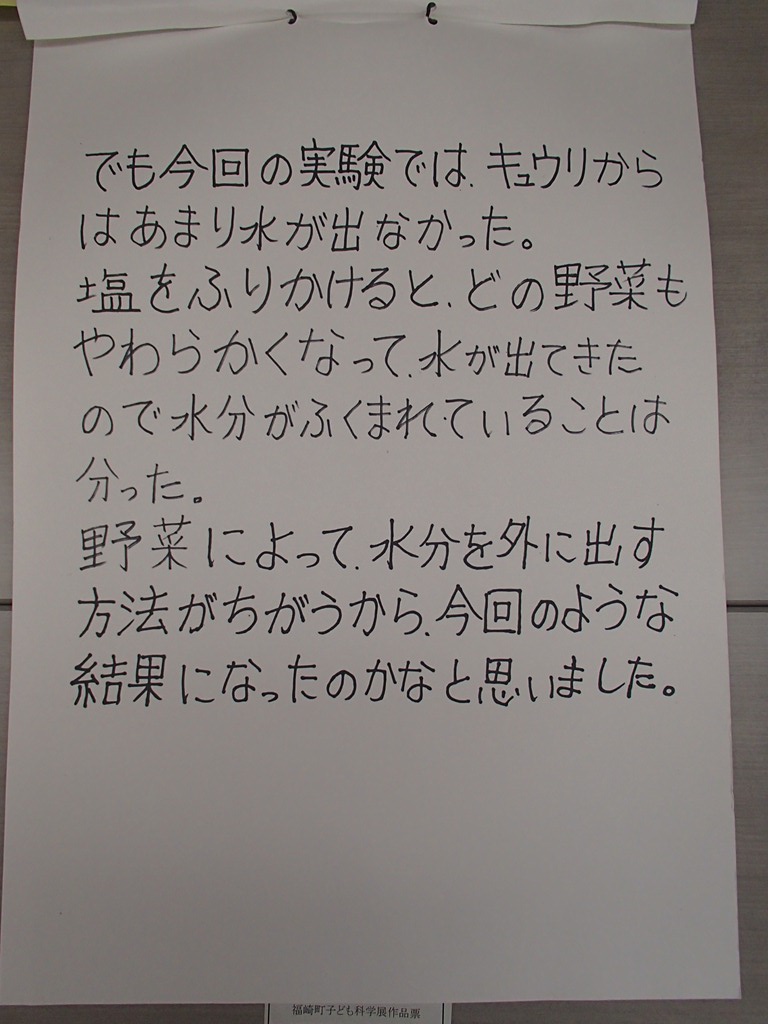 でも今回の実験では、キュウリから
はあまり水が出なかった。
塩をふりかけると、どの野菜も
やわらかくなって、水が出てきた
ので水分がふくまれていることは
分った。
野菜によって、水分を外に出す
方法がちがうから、今回のような
結果になったのかなと思いました。
福崎町子ども科学展作品票